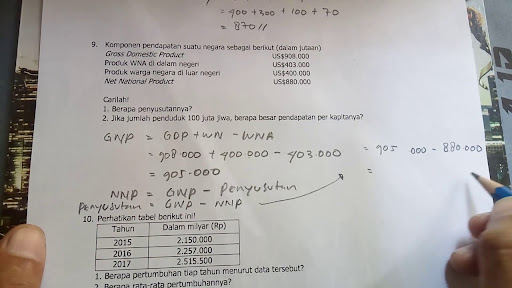 = 400 + 300 + 100 + 70
= 870 //
9. Komponen pendapatan suatu negara sebagai berikut (dalam jutaan)
Gross Domestic Product US$908.000
Produk WNA di dalam negeri US$403.000
Produk warga negara di luar negeri US$400.000
Net National Product US$880.000
Carilah!
1. Berapa penyusutannya?
2. Jika jumlah penduduk 100 juta jiwa, berapa besar pendapatan per kapitanya?
GNP = GDP + WN - WNA
= 908.000 + 400.000 - 403.000 = 905 000 - 880.000
= 905.000 =
NNP = GNP - Penyusutan
Penyusutan = GNP - NNP
10. Perhatikan tabel berikut ini!
Tahun Dalam milyar (Rp)
2015 2.150.000
2016 2.257.000
2017 2.515.500
1. Berapa pertumbuhan tiap tahun menurut data tersebut?
2. Berapa rata-rata pertumbuhannya?